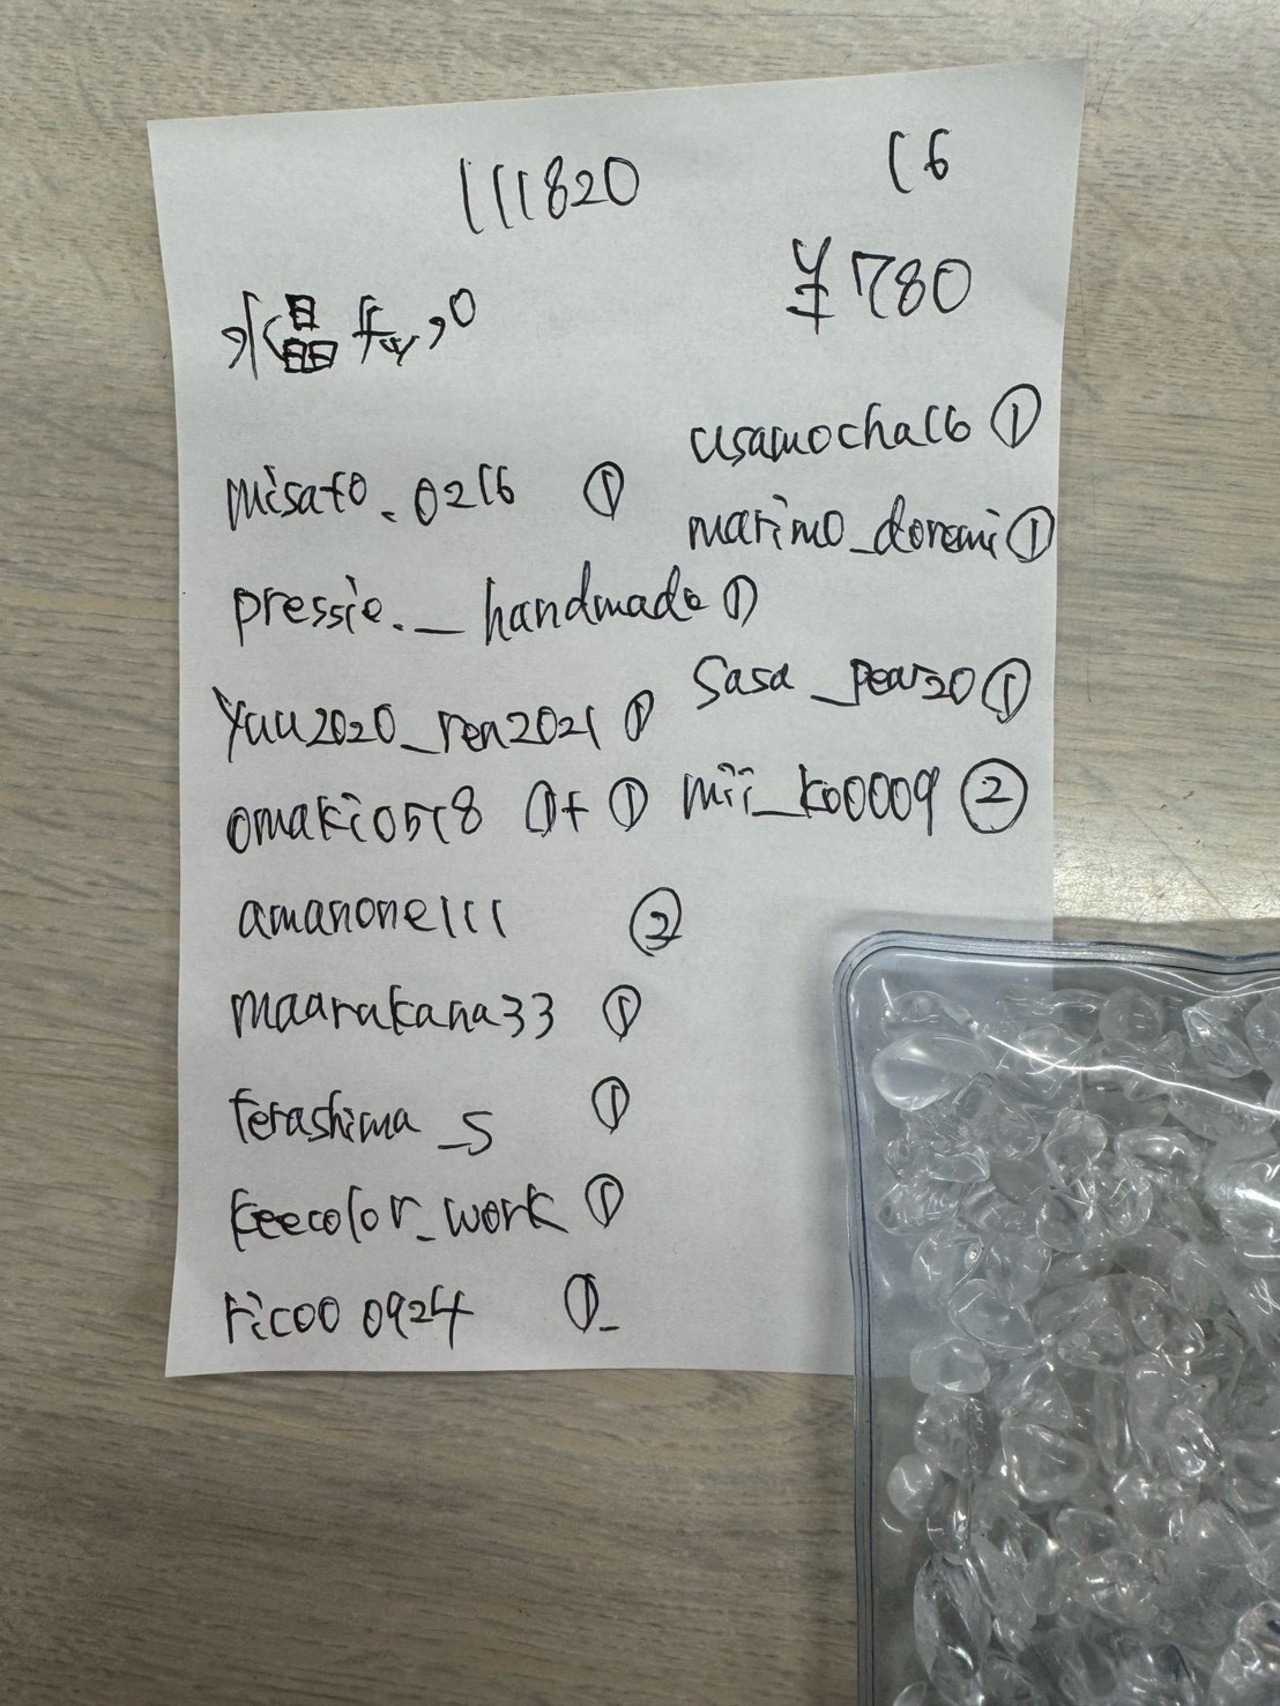 111820
16
¥780
水晶チップ
misato.0216 ①
usamocha16 ①
marimo_doremi ①
pressie._handmade ①
yuu2020_ren2021 ①
sasa_pear20 ①
omaki0518 ①+①
mii_ko0009 ②
amanone111 ②
maarakana33 ①
terashima_s ①
keecolor_work ①
ricoo0924 ①